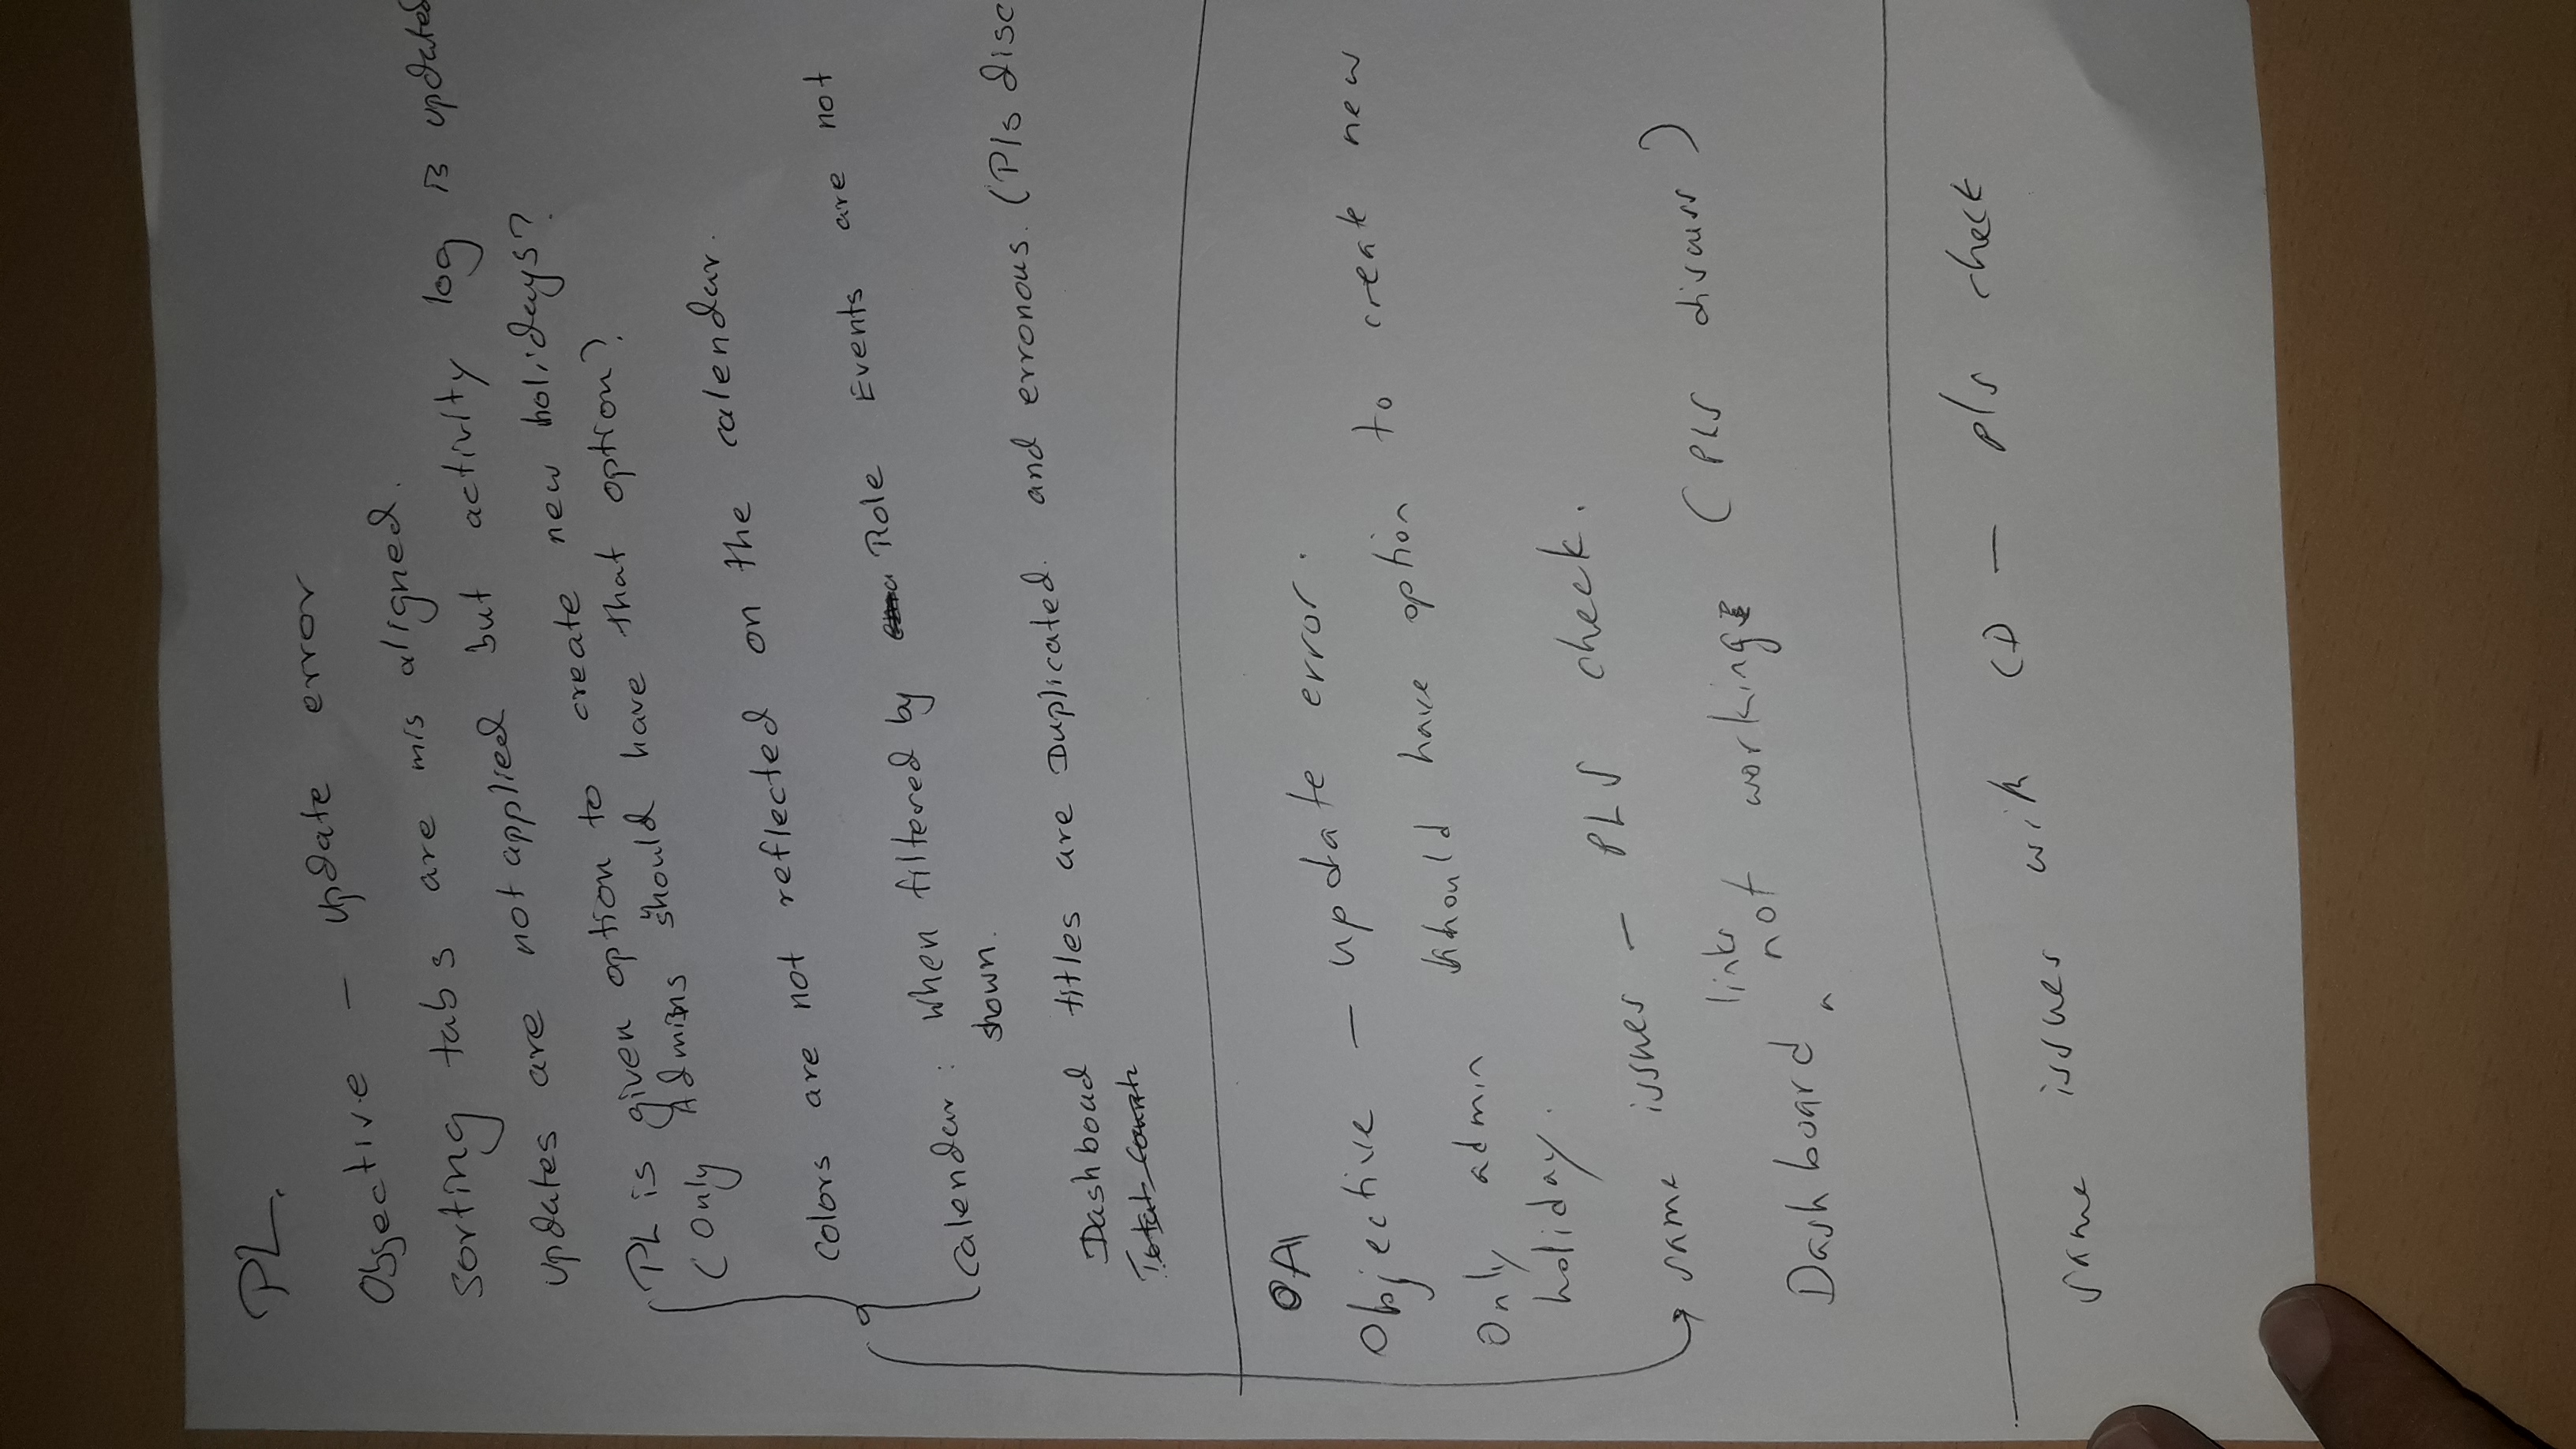 PL.
Objective - update error
sorting tabs are mis aligned.
updates are not applied but activity log is updated
PL is given option to create new holidays?
(Only Admins should have that option?
colors are not reflected on the calendar.
calendar: when filtered by Role Events are not
shown.
Dashboad titles are Duplicated. and erronous. (Pls disc
Total Count
OA
Objective - update error.
Only admin should have option to create new
holiday.
same issues - PLS check.
Dashboard links not working (PLS discuss)
same issues with CD - pls check